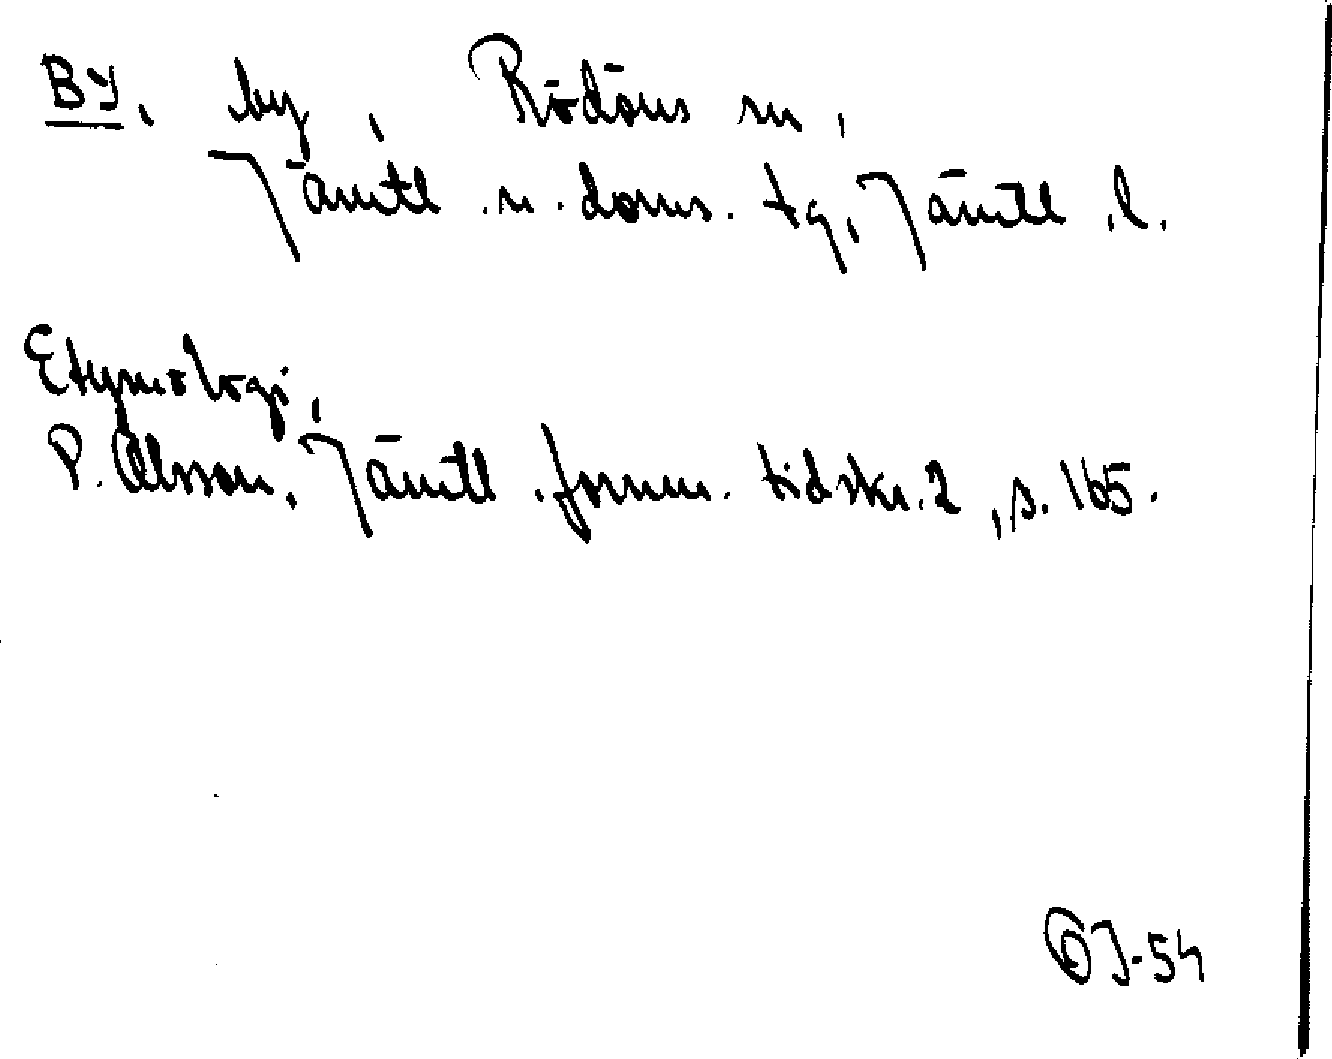 BY, by, Rödöns sn,
Jämtl. n. doms. tg, Jämtl. l.
Etymologi,
P. Olsson, Jämtl. fornm. tidskr. 2, s. 165.
OJ-54